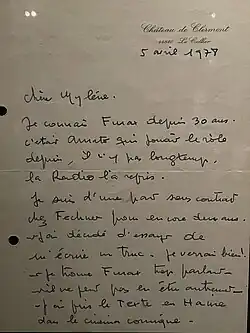 Château de Clermont
44850 Le Cellier
5 avril 1977
chère Mylène.
Je connais depuis 30 ans.
c'était qui jouait le rôle
depuis, il n'y a pas longtemps,
la Radio l'a repris.
Je suis d'une part sous contrat
chez Fechner pour encore deux ans.
- j'ai décidé d'essayer de
m'écrire un truc. Je verrai bien!
- je trouve trop parlant
- il ne veut pas en être
- j'ai pris le Texte en Haine
dans le cinéma comique.